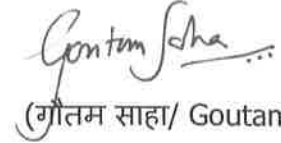 Goutam Saha
(गौतम साहा/ Goutan